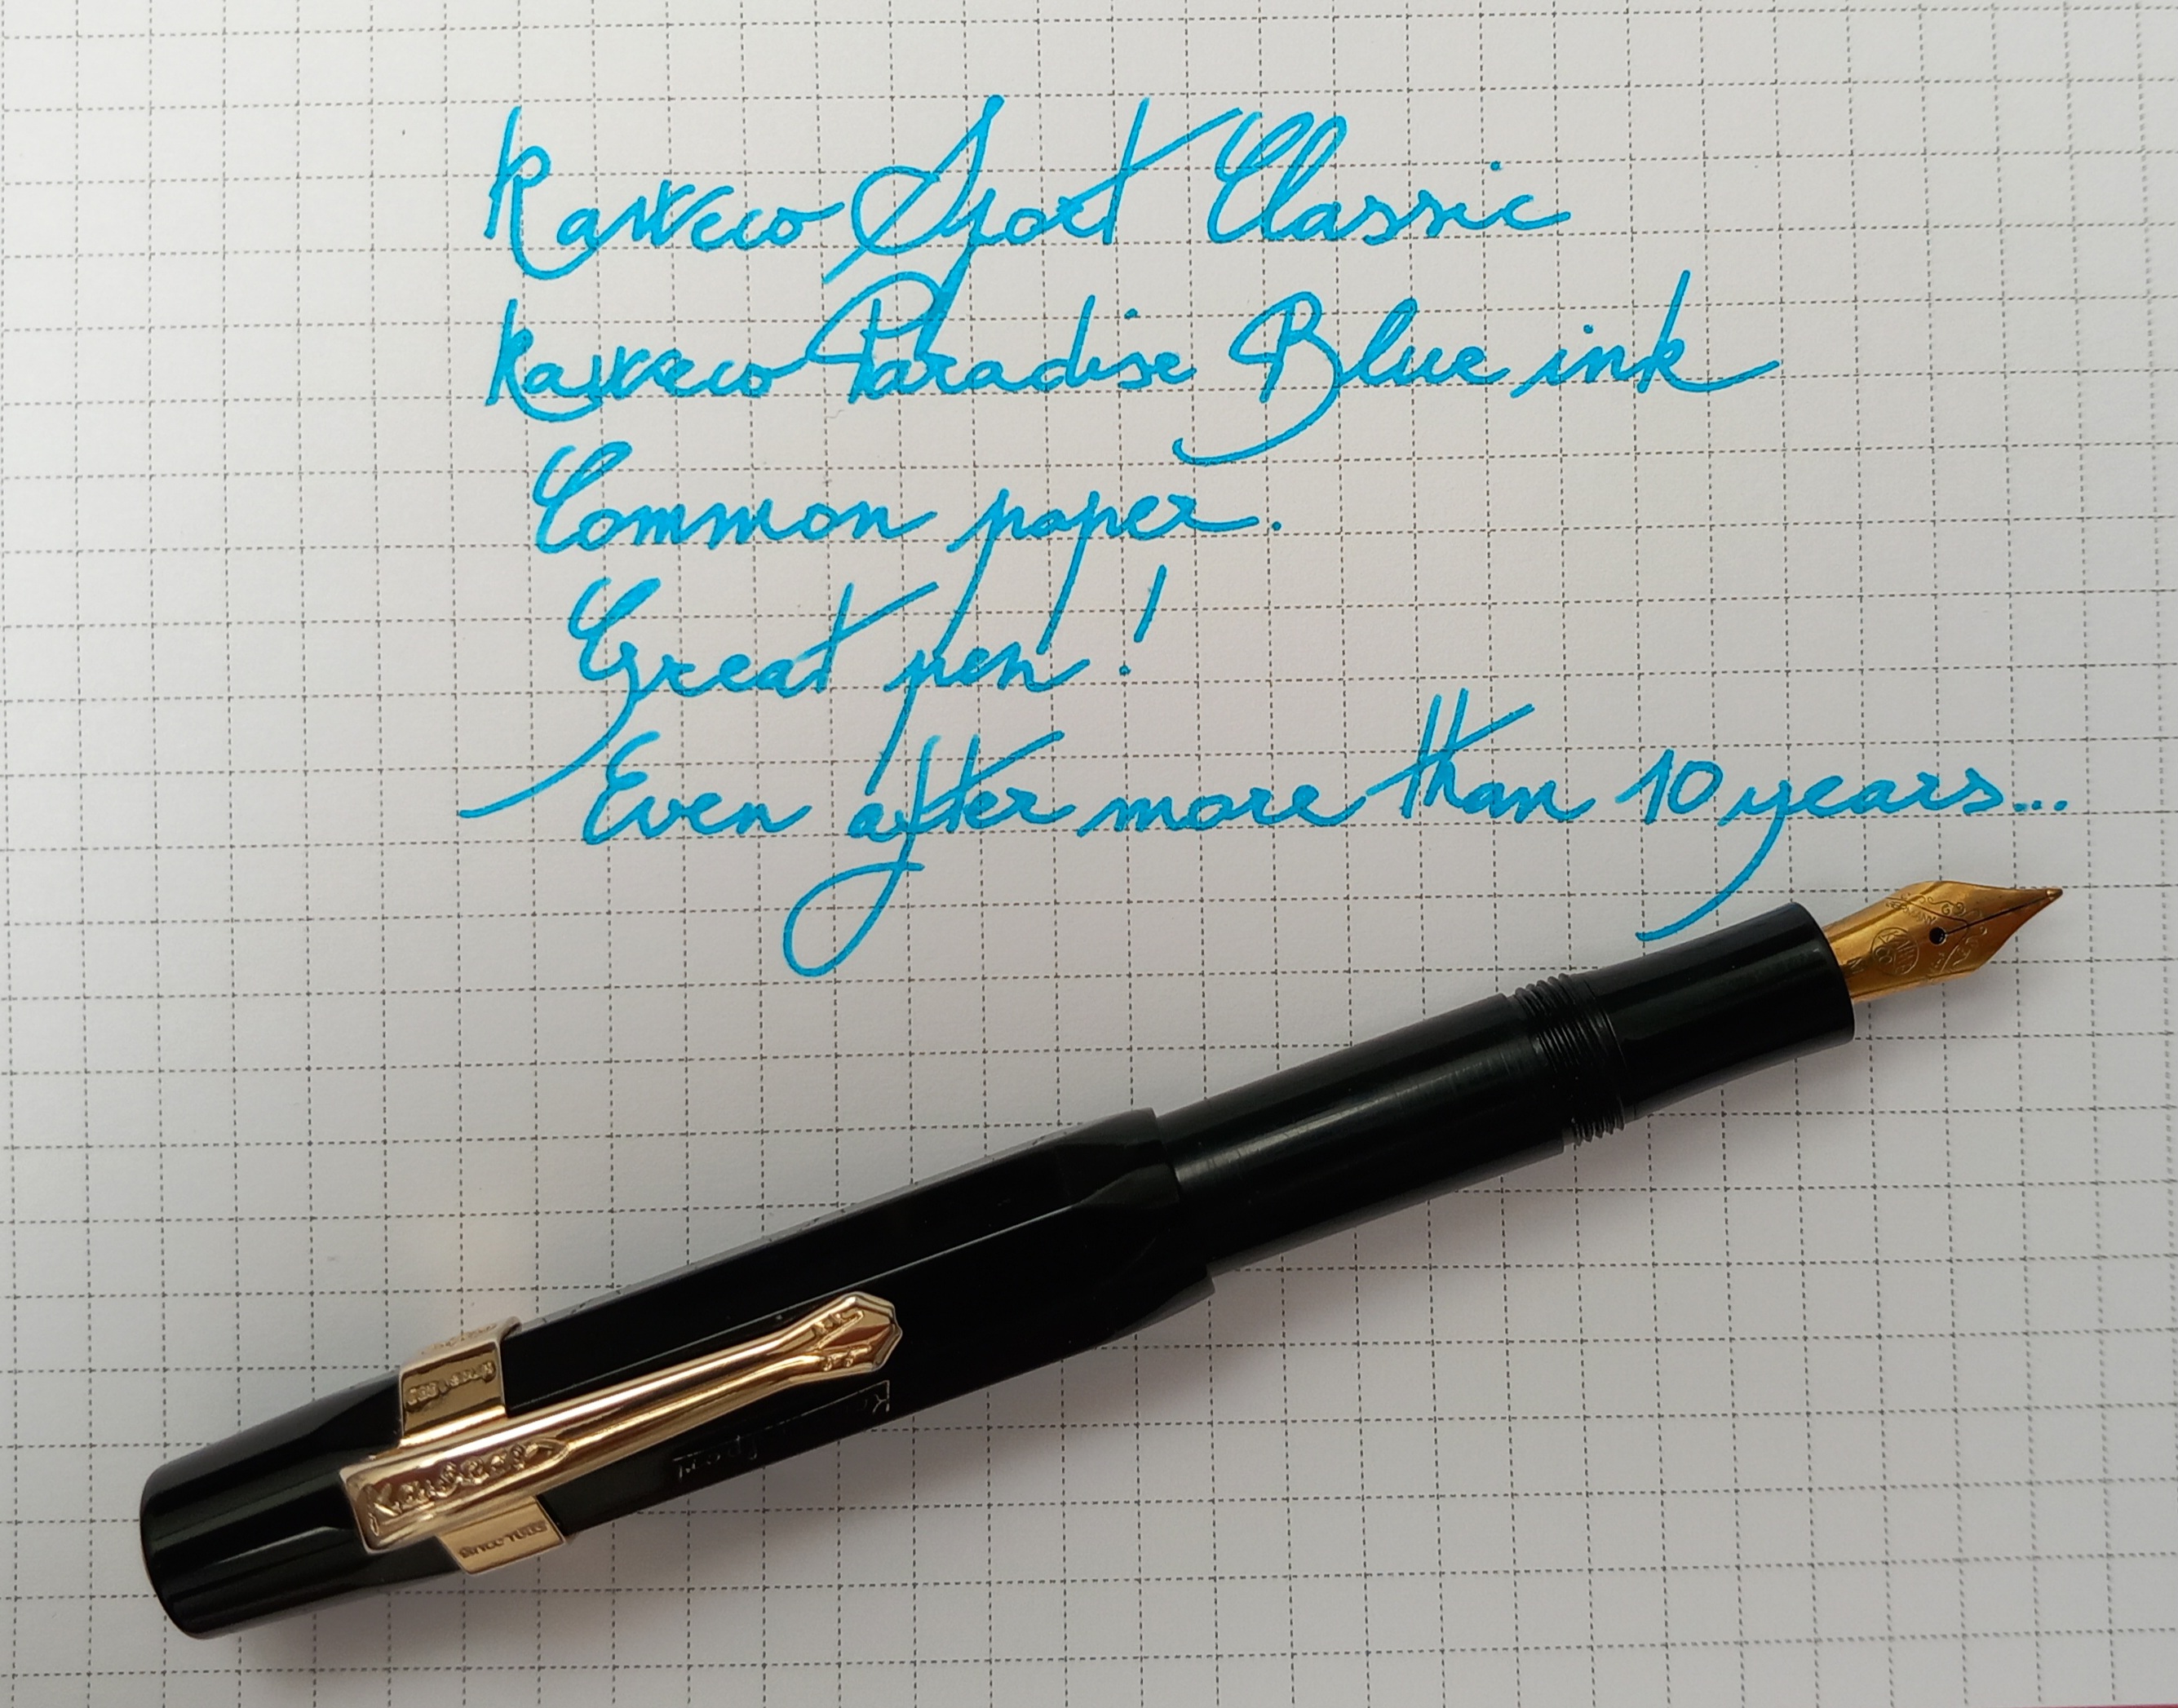 Kaweco Sport Classic
Kaweco Paradise Blue ink
Common paper.
Great pen!
Even after more than 10 years...
Kaweco